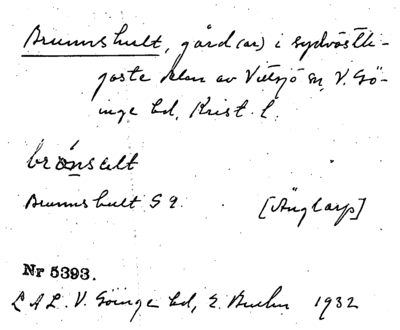 Brunnshult, gård(ar) i sydvästli-
gaste delen av Vittsjö sn, V. Gö-
inge hd, Krist. l.
brønsælt
Brunnshult S 9. [Änglarp]
Nr 5393.
L A L. V. Göinge hd, E. 1932